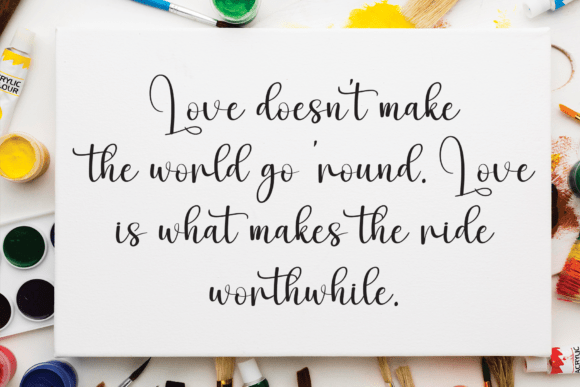 Love doesn't make
the world go 'round. Love
is what makes the ride
worthwhile.
ACRYLIC
COLOUR
ACRYLIC